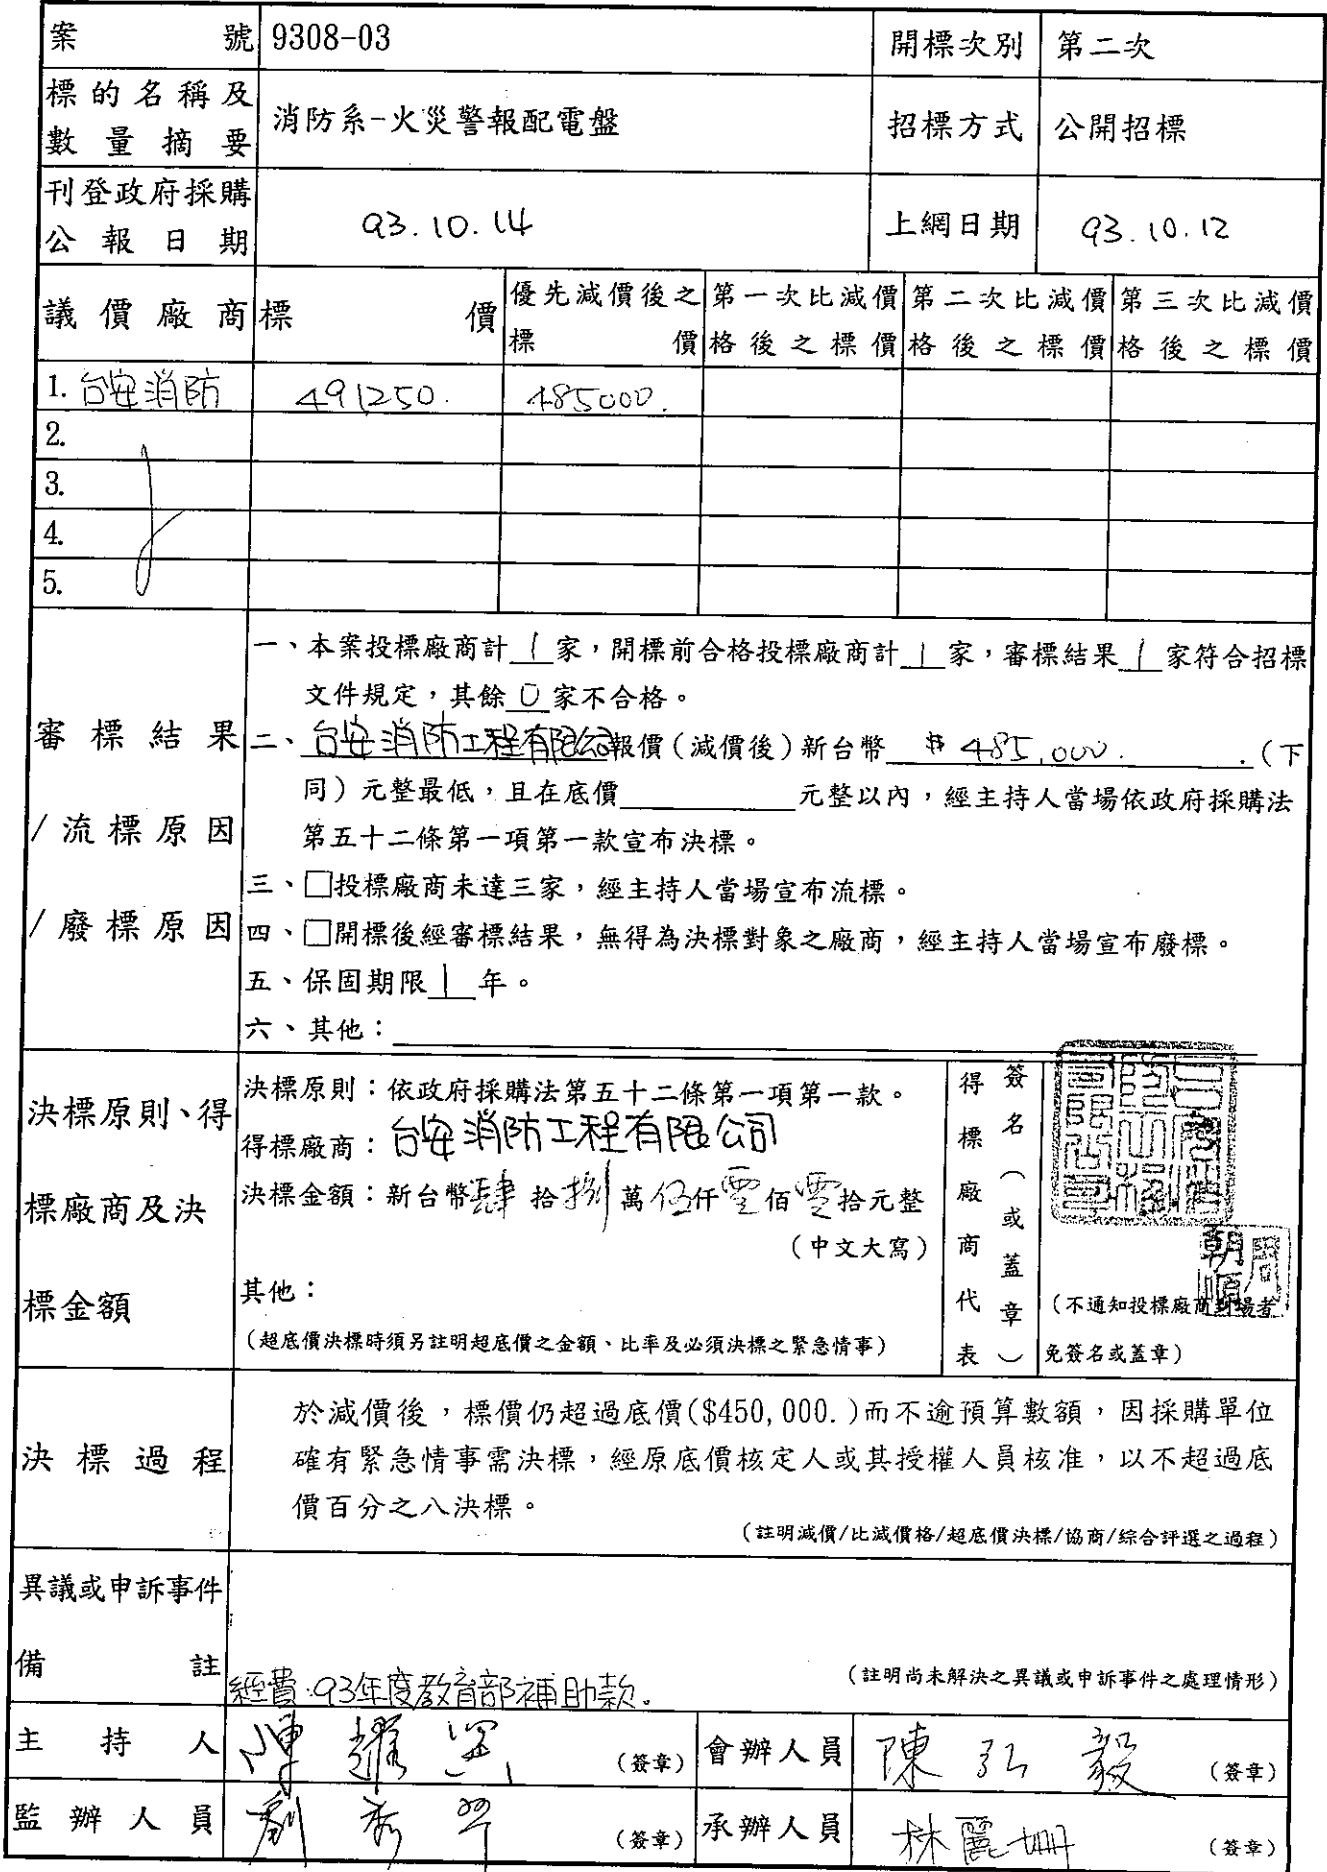 案號 9308-03 開標次別 第二次
標的名稱及
數量摘要
消防系-火災警報配電盤 招標方式 公開招標
刊登政府採購
公報日期
93.10.14 上網日期 93.10.12
議價廠商 標價
優先減價後之
標價
第一次比減價
格後之標價
第二次比減價
格後之標價
第三次比減價
格後之標價
1. 台安消防 491250. 485000.
2.
3.
4.
5.
審標結果
/流標原因
/廢標原因
一、本案投標廠商計1家,開標前合格投標廠商計1家,審標結果1家符合招標
文件規定,其餘0家不合格。
二、台安消防工程有限公司報價(減價後)新台幣$485,000.(下
同)元整最低,且在底價______元整以內,經主持人當場依政府採購法
第五十二條第一項第一款宣布決標。
三、□投標廠商未達三家,經主持人當場宣布流標。
四、□開標後經審標結果,無得為決標對象之廠商,經主持人當場宣布廢標。
五、保固期限1年。
六、其他:
決標原則、得
標廠商及決
標金額
決標原則:依政府採購法第五十二條第一項第一款。
得標廠商:台安消防工程有限公司
決標金額:新台幣肆拾捌萬伍仟零佰零拾元整
(中文大寫)
其他:
(超底價決標時須另註明超底價之金額、比率及必須決標之緊急情事)
得標廠商代表
簽名(或蓋章)
周朝順
(不通知投標廠商到場者
免簽名或蓋章)
決標過程
於減價後,標價仍超過底價($450,000.)而不逾預算數額,因採購單位
確有緊急情事需決標,經原底價核定人或其授權人員核准,以不超過底
價百分之八決標。
(註明減價/比減價格/超底價決標/協商/綜合評選之過程)
異議或申訴事件
備註
經費:93年度教育部補助款。
(註明尚未解決之異議或申訴事件之處理情形)
主持人 陳 (簽章) 會辦人員 陳弘毅 (簽章)
監辦人員 劉秀 (簽章) 承辦人員 林麗珊 (簽章)